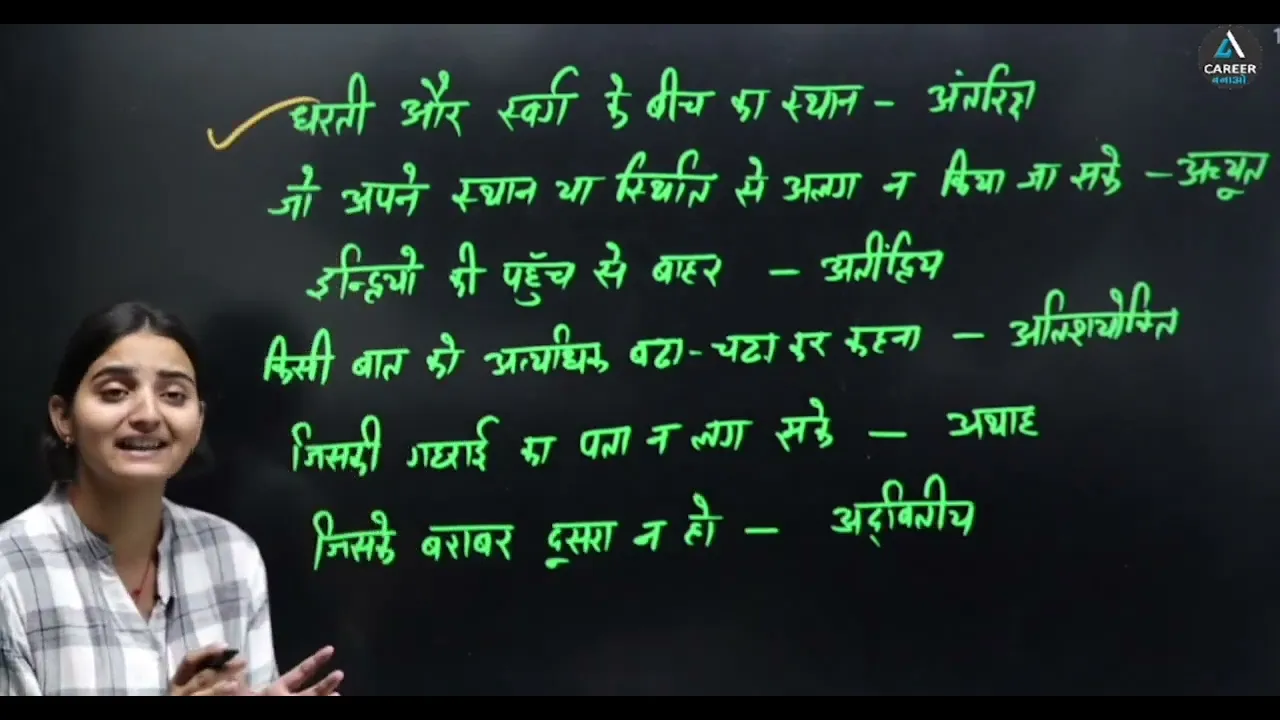 CAREER
बनाओ
धरती और स्वर्ग के बीच का स्थान - अंतरिक्ष
जो अपने स्थान या स्थिति से अलग न किया जा सके - अच्यूत
इन्द्रियो की पहुँच से बाहर - अतींद्रिय
किसी बात को अत्यधिक बढा-चढा कर कहना - अतिशयोक्ति
जिसकी गहराई का पता न लग सके - अथाह
जिसके बराबर दूसरा न हो - अद्वितीय